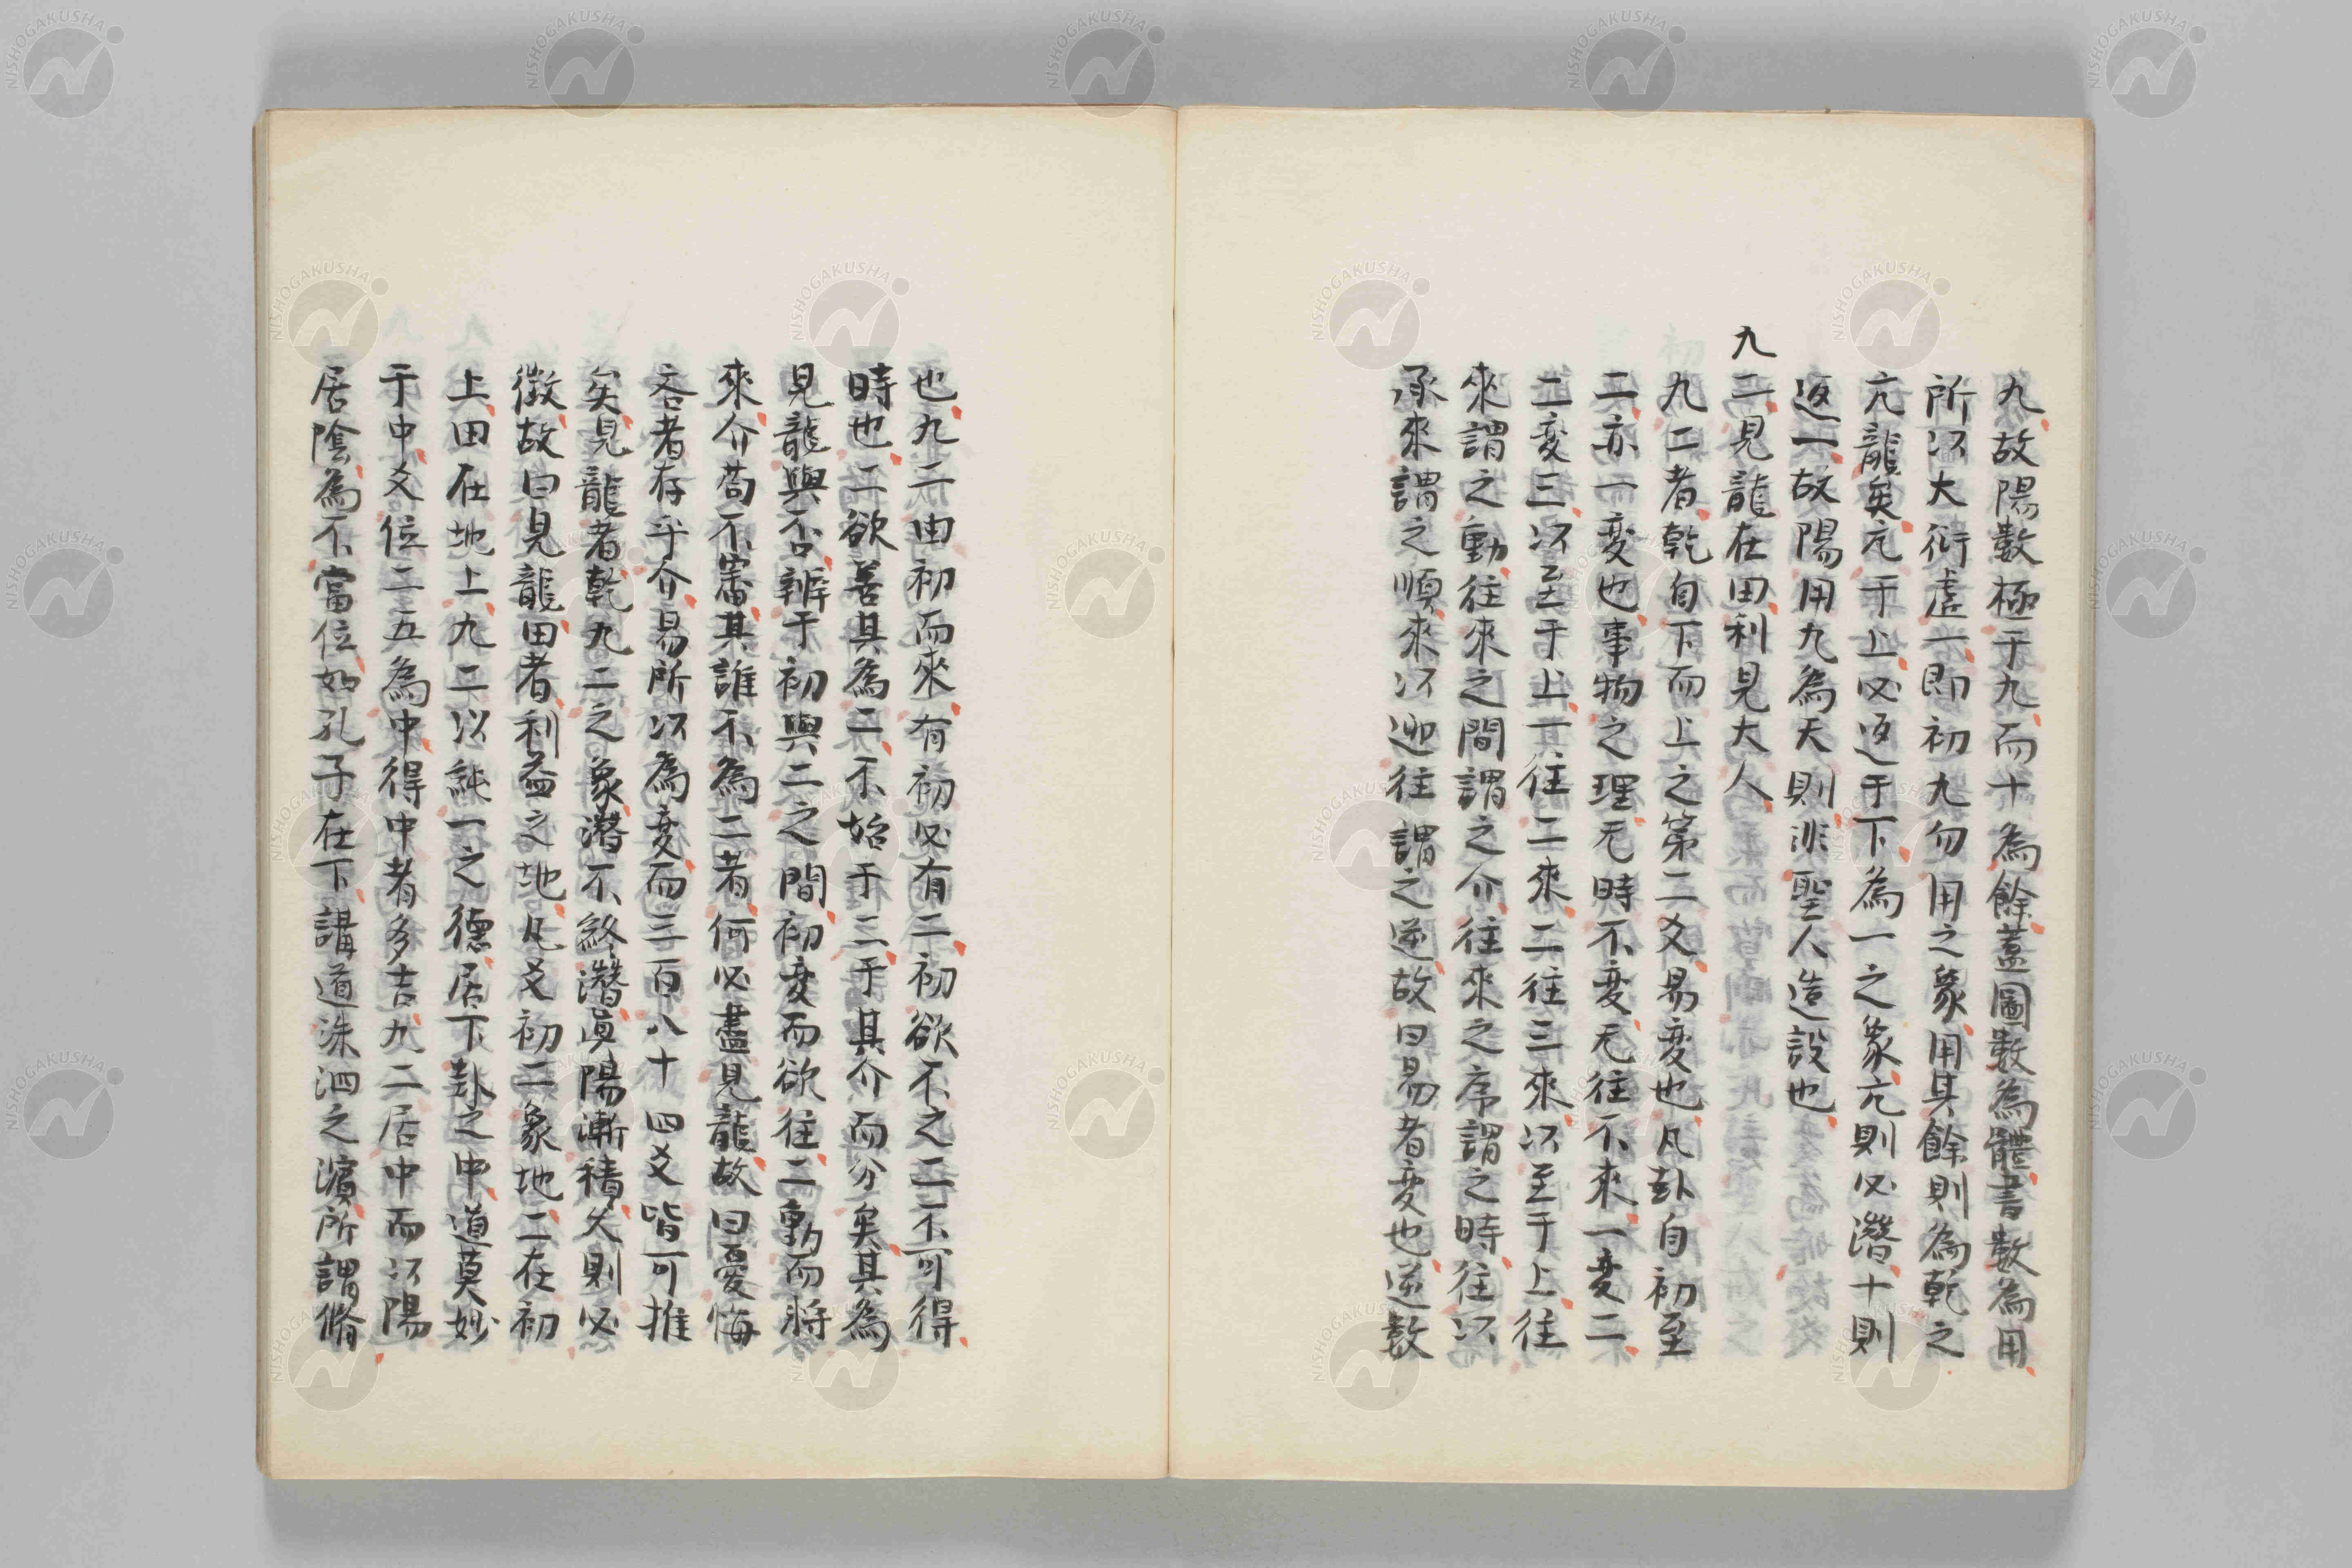 九故陽數極于九而十為餘蓋圖數為體書數為用
所以大衍虛一即初九勿用之象用其餘則為乾之
亢龍矣亢于上必返于下為一之象亢則必潛十則
返一故陽用九為天則非聖人造設也
九二見龍在田利見大人
九二者乾自下而上之第二爻易変也凡卦自初至
二亦一変也事物之理无時不変无往不來一変二
二変三以至于上一往二來二往三來以至于上往
來謂之動往來之間謂之介往來之序謂之時往以
承來謂之順來以迎往謂之逆故曰易者変也逆數
也九二由初而來有初必有二初欲不之二不可得
時也二欲善其為二不始于二于其介而分矣其為
見龍與否辨于初與二之間初変而欲往二動而將
來介苟不審其誰不為二者何必盡見龍故曰憂悔
吝者存乎介易所以為変而三百八十四爻皆可推
矣見龍者乾九二之象潛不終潛眞陽漸積久則必
徵故曰見龍田者利益之地凡爻初二象地二在初
上田在地上九二以純一之德居下卦之中道莫妙
于中爻位二五為中得中者多吉九二居中而以陽
居陰為不當位如孔子在下講道洙泗之濱所謂脩
NISHOGAKUSHA